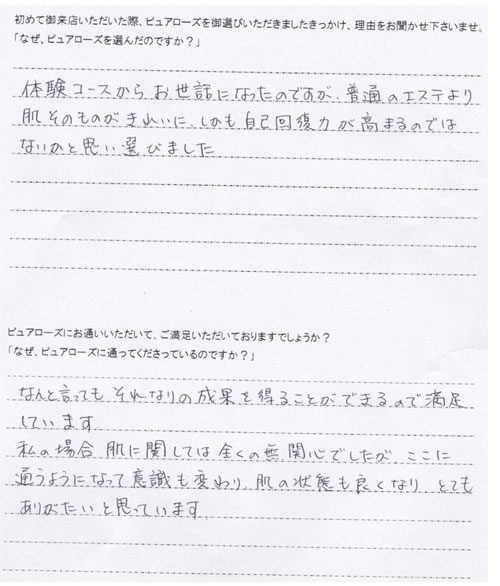 初めて御来店いただいた際、ピュアローズを御選びいただきましたきっかけ、理由をお聞かせ下さいませ。
「なぜ、ピュアローズを選んだのですか？」
体験コースからお世話になったのですが、普通のエステより
肌そのものがきれいに、しかも自己回復力が高まるのでは
ないかと思い選びました
ピュアローズにお通いいただいて、ご満足いただいておりますでしょうか？
「なぜ、ピュアローズに通ってくださっているのですか？」
なんと言っても それなりの成果を得ることができるので満足
しています。
私の場合、肌に関しては全くの無関心でしたが、ここに
通うようになって意識も変わり、肌の状態も良くなり とても
ありがたいと思っています。